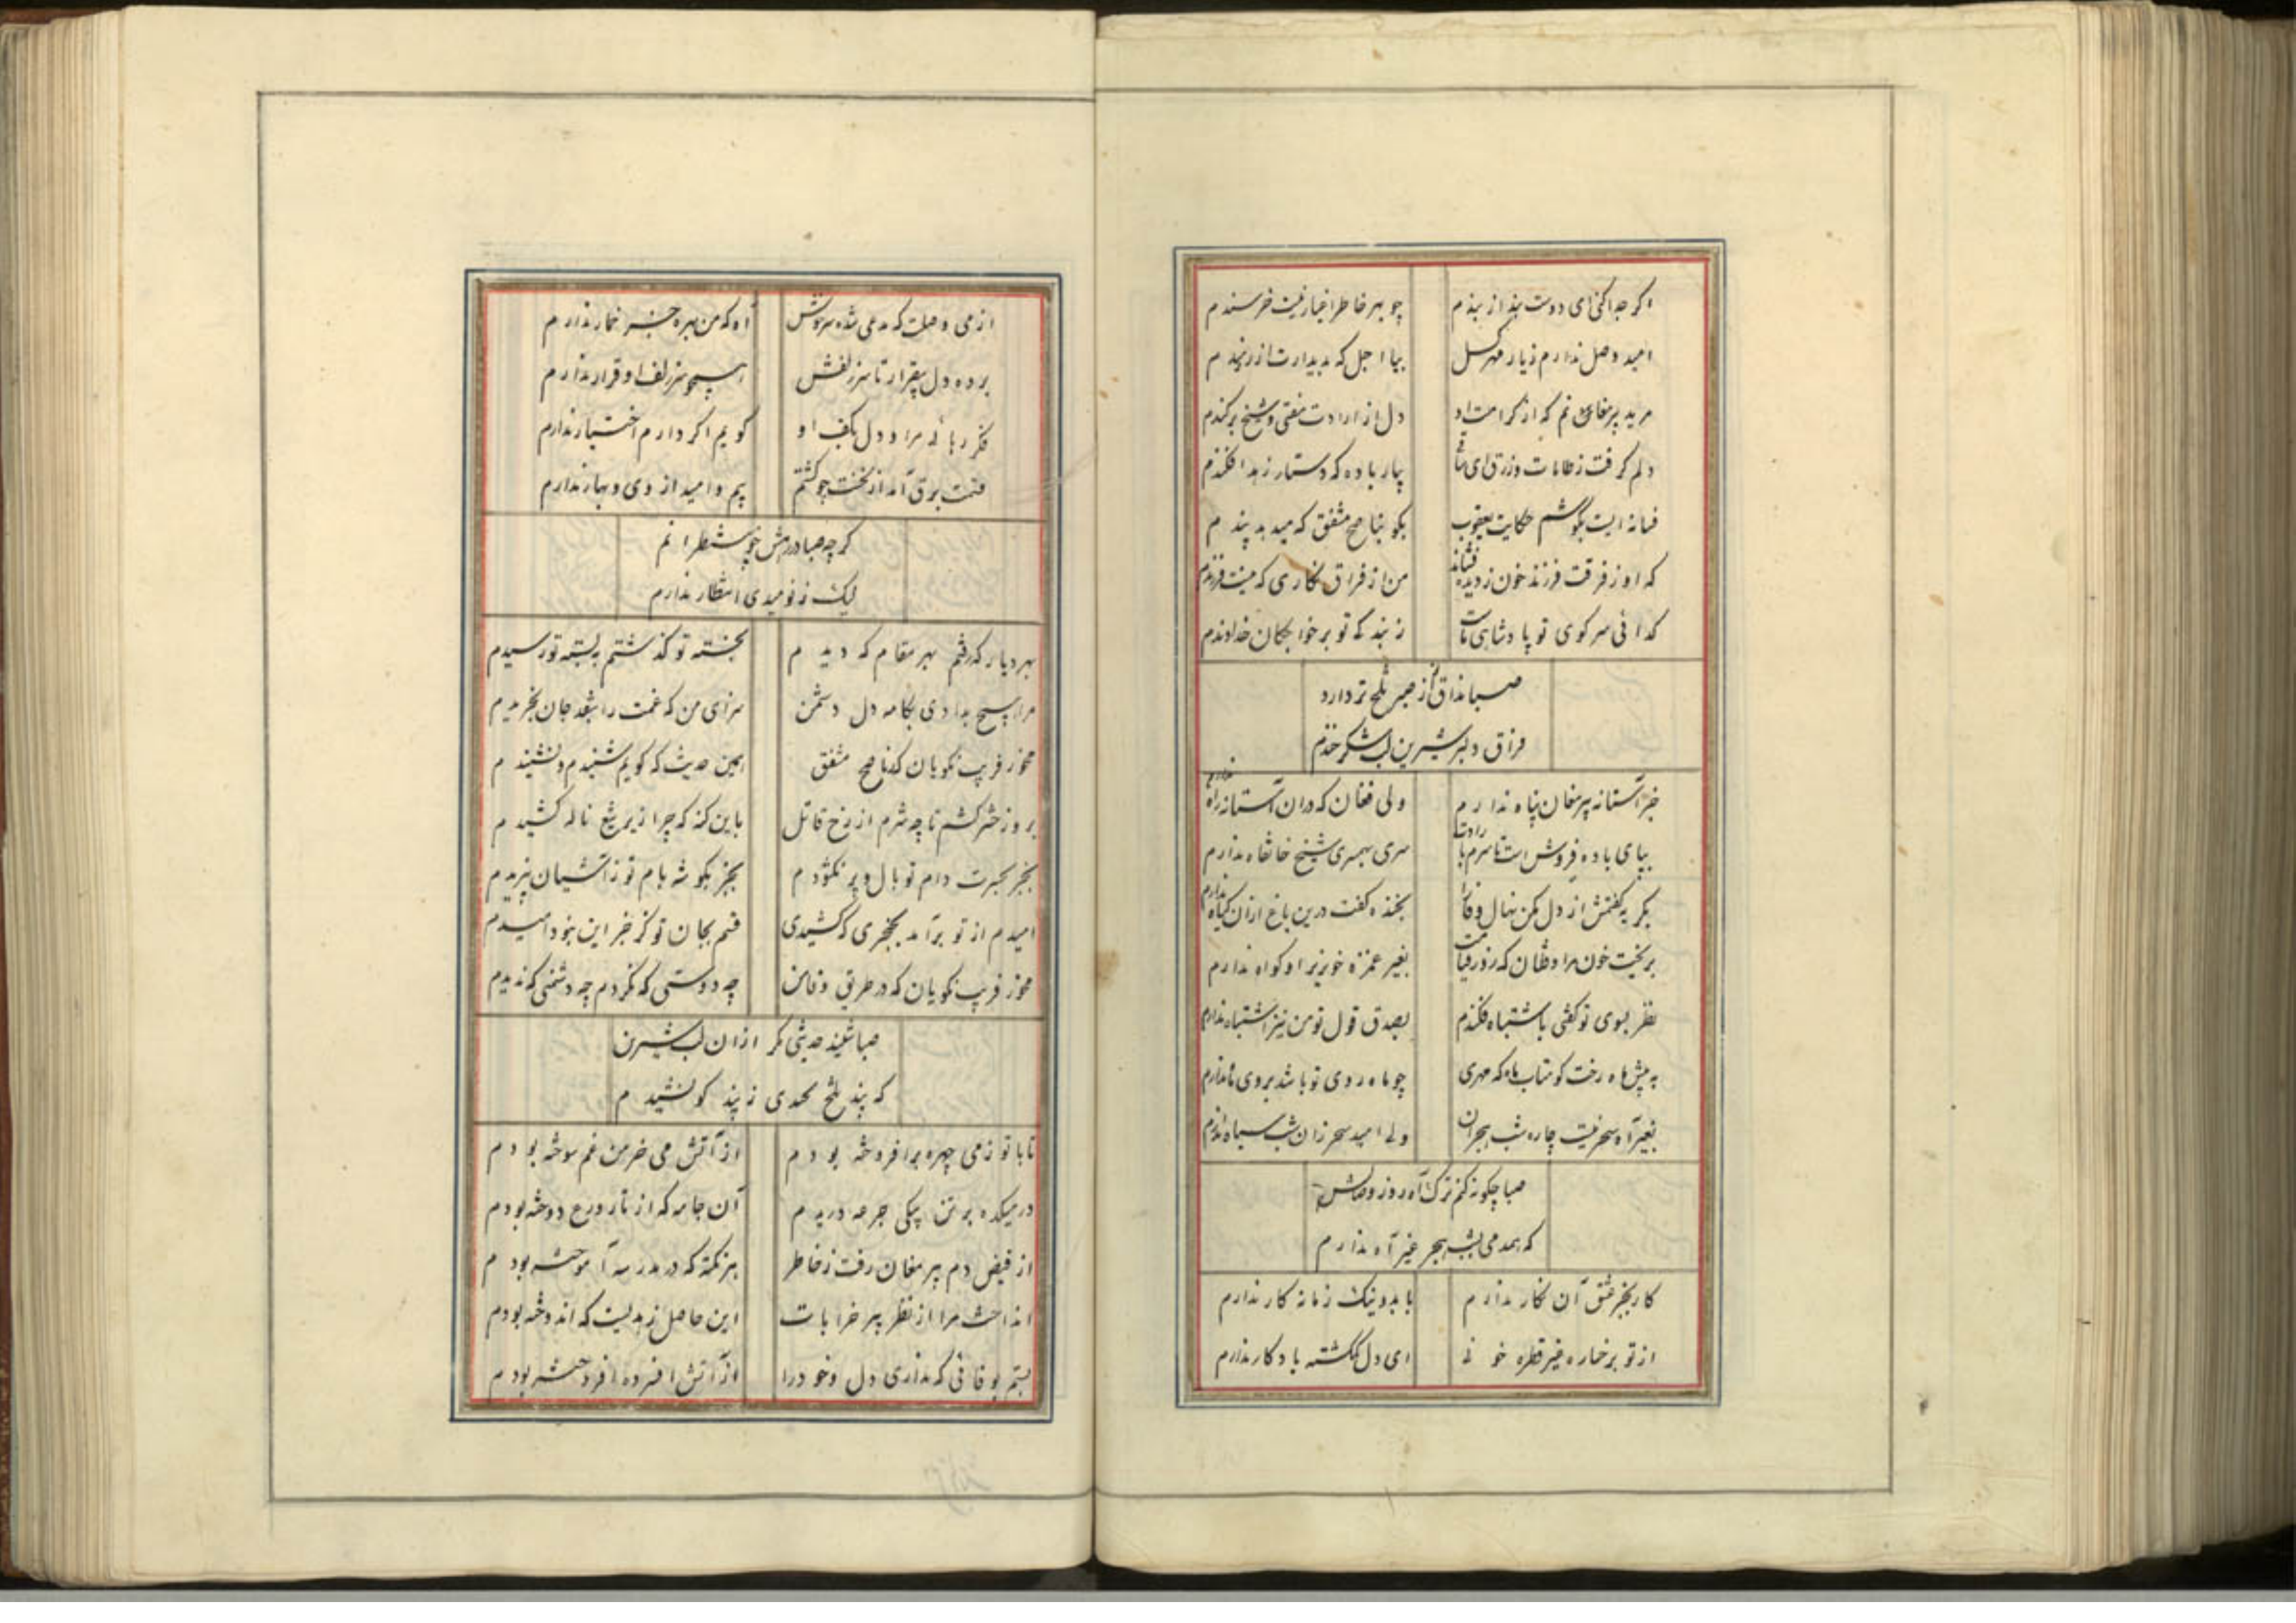 اکر جدا کنی ای دوست بند از بندم
چو بهر خاطر اغیار نیست خرسندم
امید وصل ندارم ز یار مهرکسل
بیا اجل که بدیدارت آرزومندم
مرید پیر مغان منم که از کرامت او
دل از ارادت مفتی و شیخ برکندم
دلم کرفت ز طامات و زرق ای ساقی
بیار باده که دستار زهد افکندم
فسانه ایست بکوشم حکایت یعقوب
بکو بناصح مشفق که میدهد پندم
که او ز فرقت فرزند خون ز دیده فشاند
من از فراق نکاری که نیست فرزندم
کدائی سر کوی تو پادشاهی ماست
ز بندکی تو بر خواجکان خداوندم
صبا مذاق من از صبر تلخ تر دارد
فراق دلبر شیرین لب شکرخندم
جز آستانه پیر مغان پناه ندارم
ولی فغان که دران آستانه راه ندارم
بپای باده فروش است تا سرم بارادت
سری بهمسری شیخ خانقاه ندارم
بکریه کفتمش از دل مکن نهال وفا را
بخنده کفت درین باغ ازان کیاه ندارم
بریخت خون مرا و ظان که روز قیامت
بغیر غمزه خونریز او کواه ندارم
نظر بسوی تو کفتی باشتباه فکندم
بصدق قول تو من نیز اشتباه ندارم
به پیش ماه رخت کو متاب ماه که مهری
چو ماه روی تو باشد بروی ماه ندارم
بغیر آه سحر نیست چاره شب هجران
ولی امید سحر زان شب سیاه ندارم
صبا چکونه کنم ترک آه روز وصالش
که همدمی بشب هجر غیر آه ندارم
کار بجز عشق آن نکار ندارم
با بد و نیک زمانه کار ندارم
از تو برخساره غیر قطره خونی
ای دل کمکشته یادکار ندارم
از می وصلت که مدعی شده سرخوش
آه که من بهره جز خمار ندارم
برده دل بیقرار تا سر زلفش
همچو سر زلف او قرار ندارم
فکر رهائی مرا و دل بکف او
کویم اکر دارم اختیار ندارم
قسمت برق آمد از نخست چو کشتم
بیم و امید از دی و بهار ندارم
کرچه صبا در رهش چو منتظرانم
لیک ز نومیدی انتظار ندارم
بهر دیار که رفتم بهر مقام که دیدم
بخسته تو کذشتم به بسته تو رسیدم
مرا بهیچ بدادی بکامه دل دشمن
سزای من که غمت را بنقد جان بخریدم
مخور فریب نکویان که ناصح مشفق
همین حدیث که کویم شنیدم و نشنیدم
بروز حشر کشم تا چه شرم از رخ قاتل
باین کنه که چرا زیر تیغ ناله کشیدم
بجز بحیرت دام تو بال و پر نکشودم
بجز بکوشه بام تو ز آشیان نپریدم
امیدم از تو برآمد بخنجری که کشیدی
قسم بجان تو کز خنجر این بنود امیدم
مخور فریب نکویان که در طریق وفا من
چه دوستی که نکردم چه دشمنی که ندیدم
صبا شنید حدیثی مکر ازان لب شیرین
که پند تلخ محمدی ز پندکو نشنیدم
تا با تو ز می چهره برافروخته بودم
از آتش می خرمن غم سوخته بودم
در میکده بر تن بیکی جرعه دریدم
آن جامه که از تار ورع دوخته بودم
از فیض دم پیر مغان رفت ز خاطر
هر نکته که در مدرسه آموخته بودم
انداخت مرا از نظر پیر خرابات
این حاصل زهدیست که اندوخته بودم
بستم بوفائی که نداری دل و خود را
از آتش افسرده افروخته بودم